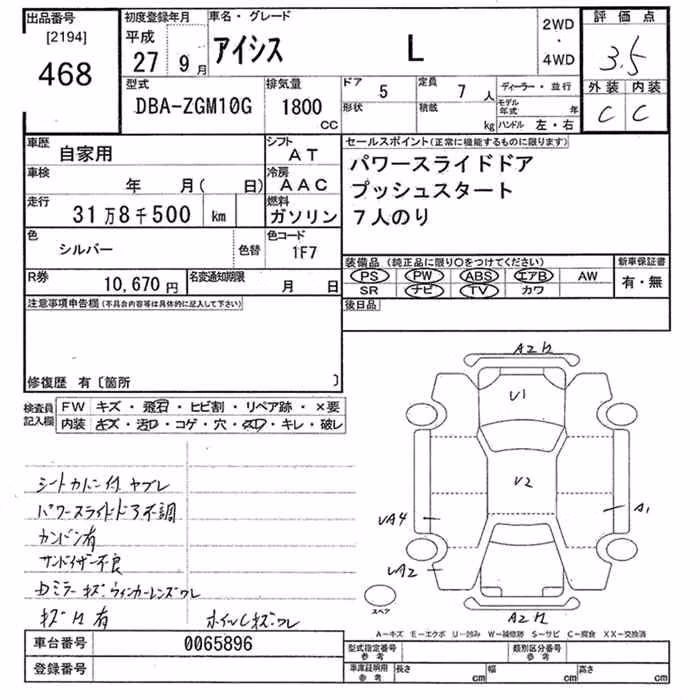 出品番号
[2194]
468
初度登録年月
平成
27 9 月
車名・グレード
アイシス L
2WD
・
4WD
評価点
3.5
外装 内装
C C
型式
DBA-ZGM10G
排気量
1800
CC
ドア 5
形状
定員 7 人
積載 kg
ディーラー・並行
モデル年式 年
ハンドル 左・右
車歴
自家用
シフト
AT
車検
年 月( 日)
冷房
AAC
走行
31万8千500 km
燃料
ガソリン
色
シルバー
色替
色コード
1F7
R券
10,670 円
名変通知期限
月 日
セールスポイント(正常に機能するものに限ります)
パワースライドドア
プッシュスタート
7人のり
装備品 (純正品に限り○をつけてください)
PS PW ABS エアB AW
SR ナビ TV カワ
新車保証書
有・無
後日品
注意事項申告欄(不具合内容等は具体的に記入して下さい)
修復歴 有〔箇所 〕
検査員
記入欄
FW キズ・飛石・ヒビ割・リペア跡・×要
内装 キズ・汚レ・コゲ・穴・スレ・キレ・破レ
シートカバー付 ヤブレ
パワースライドドア不調
カンバン有
サンバイザー不良
Dミラーキズ ウィンカーレンズワレ
キズ 有
ホイールCキズワレ
A2
V1
V2
UA4
UA2
A1
A2
スペア
A-キズ E-エクボ U-凹み W-補修跡 S-サビ C-腐食 XX-交換済
車台番号
0065896
登録番号
型式指定番号
参考
類別区分番号
参考
車庫証明用
参考
長さ cm
幅 cm
高さ cm